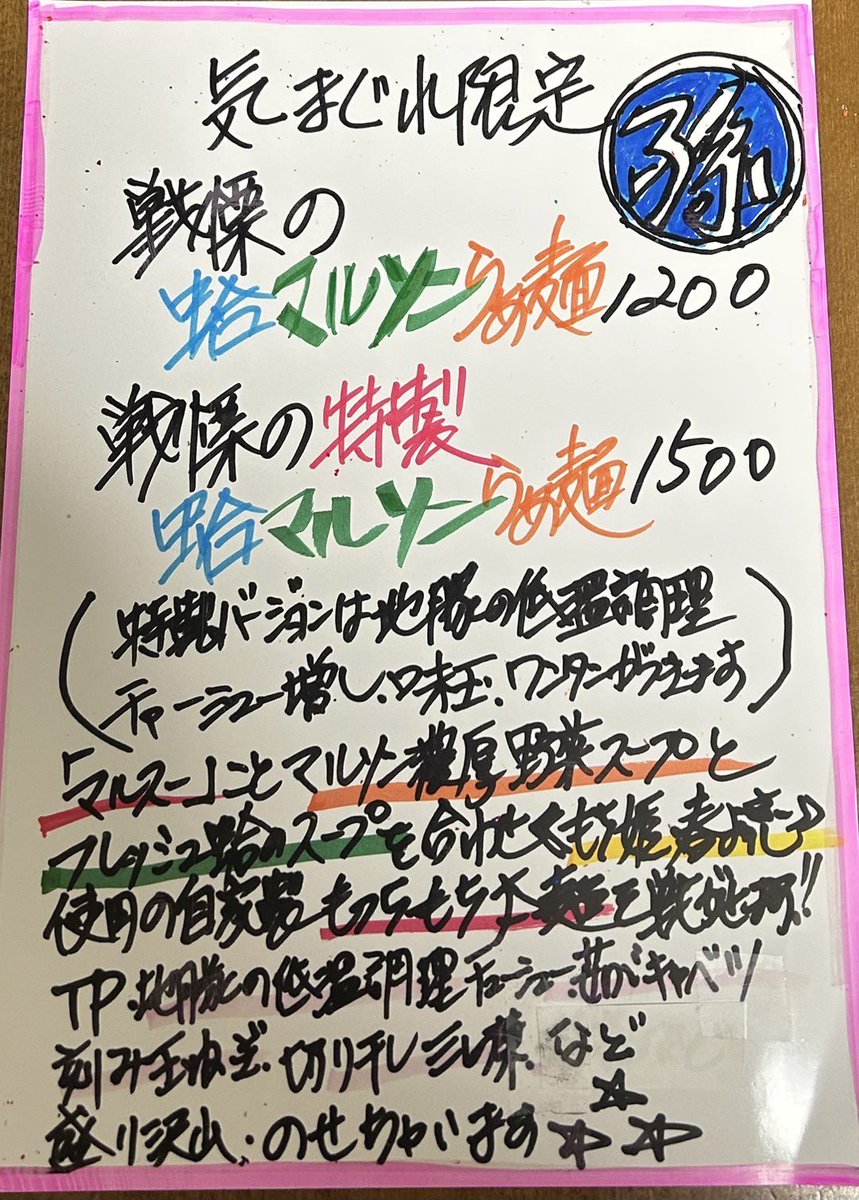 気まぐれ限定
孫
戦慄の
蛤マルソンらぁ麺1200
戦慄の特製
蛤マルソンらぁ麺1500
(特製バージョンは地豚の低温調理
チャーシュー増し、味玉、ワンタンがつきます)
「マルスー」ことマルソン濃厚野菜スープと
フレッシュ蛤のスープを合わせ もち姫 春よ恋
使用の自家製もっちもち太麺で
TP、地豚の低温調理チャーシュー、キャベツ
刻み玉ねぎ、切り干し など
盛り沢山、のせちゃいます☆☆☆